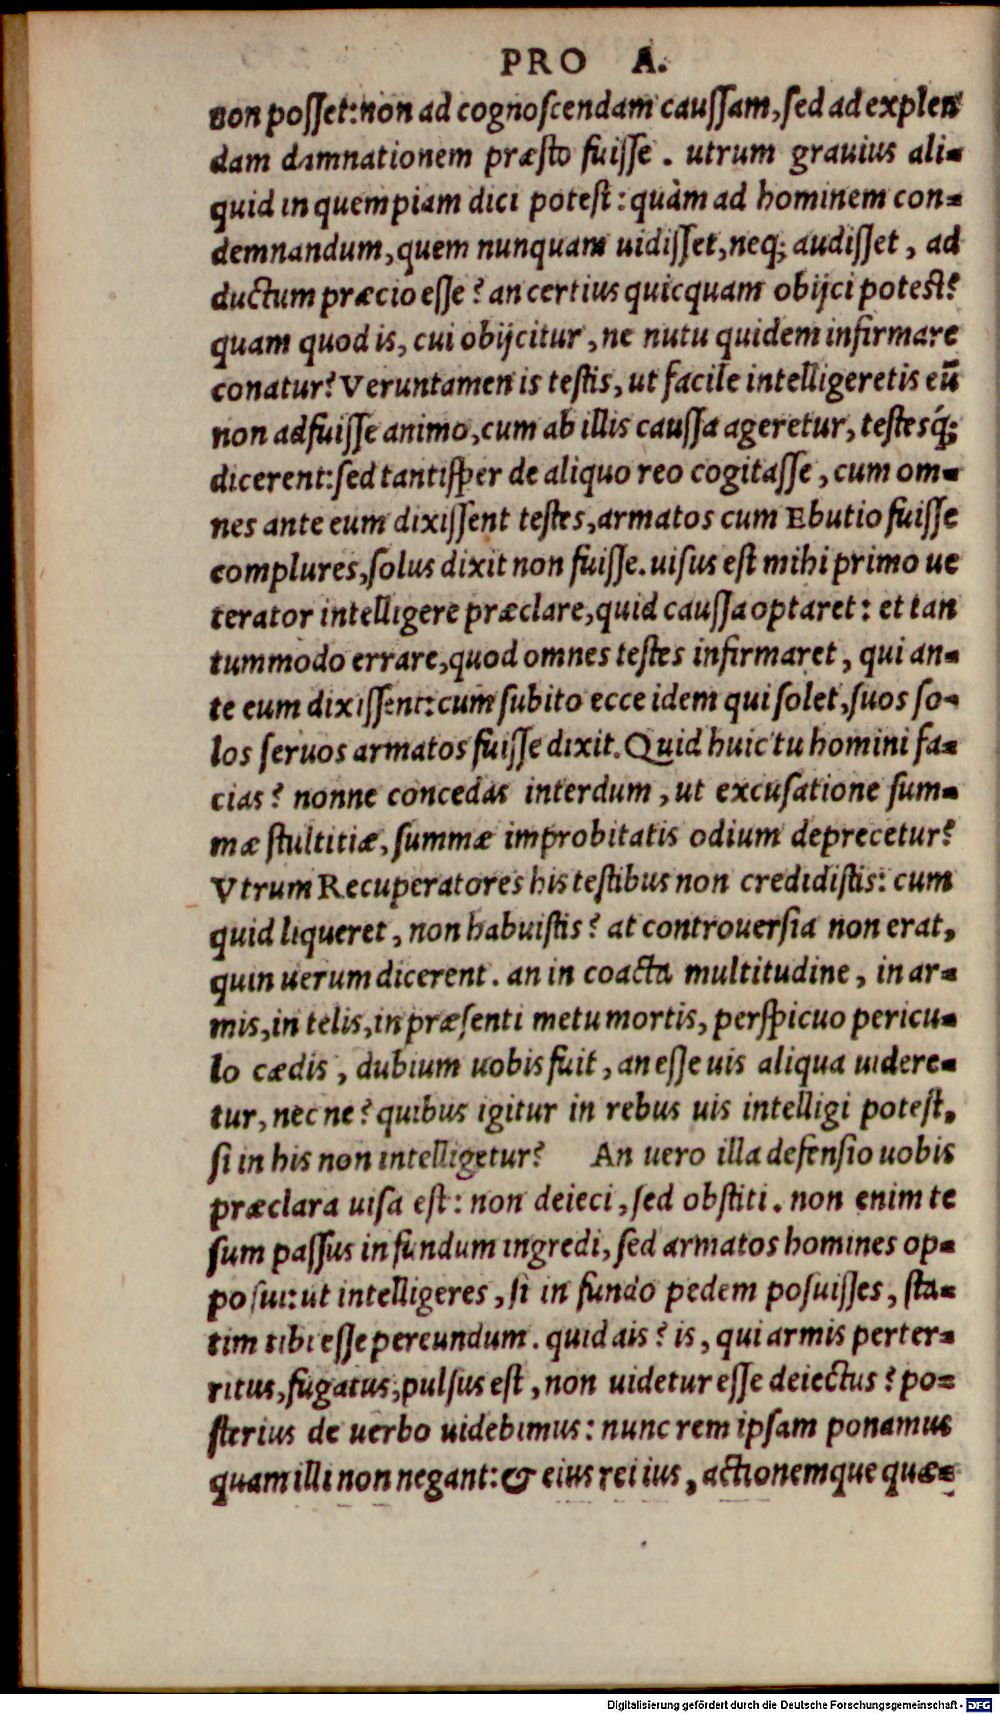 PRO A.
non posset: non ad cognoscendam caussam, sed ad explen
dam damnationem præsto fuisse. utrum grauius ali-
quid in quempiam dici potest: quàm ad hominem con-
demnandum, quem nunquam uidisset, neq; audisset, ad
ductum præcio esse? an certius quicquam obijci potest?
quam quod is, cui obijcitur, ne nutu quidem infirmare
conatur? Veruntamen is testis, ut facile intelligeretis eũ
non adfuisse animo, cum ab illis caussa ageretur, testesq́;
dicerent: sed tantisper de aliquo reo cogitasse, cum om-
nes ante eum dixissent testes, armatos cum Ebutio fuisse
complures, solus dixit non fuisse. uisus est mihi primo ue
terator intelligere præclare, quid caussa optaret: et tan
tummodo errare, quod omnes testes infirmaret, qui an-
te eum dixissent: cum subito ecce idem qui solet, suos so-
los seruos armatos fuisse dixit. Quid huic tu homini fa-
cias? nonne concedas interdum, ut excusatione sum-
mæ stultitiæ, summæ improbitatis odium deprecetur?
Vtrum Recuperatores his testibus non credidistis: cum
quid liqueret, non habuistis? at controuersia non erat,
quin uerum dicerent. an in coacta multitudine, in ar-
mis, in telis, in præsenti metu mortis, perspicuo pericu-
lo cædis, dubium uobis fuit, an esse uis aliqua uidere-
tur, nec ne? quibus igitur in rebus uis intelligi potest,
si in his non intelligetur? An uero illa defensio uobis
præclara uisa est: non deieci, sed obstiti. non enim te
sum passus in fundum ingredi, sed armatos homines op-
posui: ut intelligeres, si in fundo pedem posuisses, sta-
tim tibi esse pereundum. quid ais? is, qui armis perter-
ritus, fugatus, pulsus est, non uidetur esse deiectus? po-
sterius de uerbo uidebimus: nunc rem ipsam ponamus
quam illi non negant: & eius rei ius, actionemque quæ-
Digitalisierung gefördert durch die Deutsche Forschungsgemeinschaft - DFG